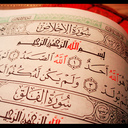 سُورَةُ الإِخْلَاصِ
بِسْمِ اللَّهِ الرَّحْمَٰنِ الرَّحِيمِ
اللَّهُ أَحَدٌ اللَّهُ
وَلَمْ يَكُن لَّهُ
سُورَةُ الْفَلَقِ
اللَّهِ الرَّحْمَٰنِ الرَّحِيمِ